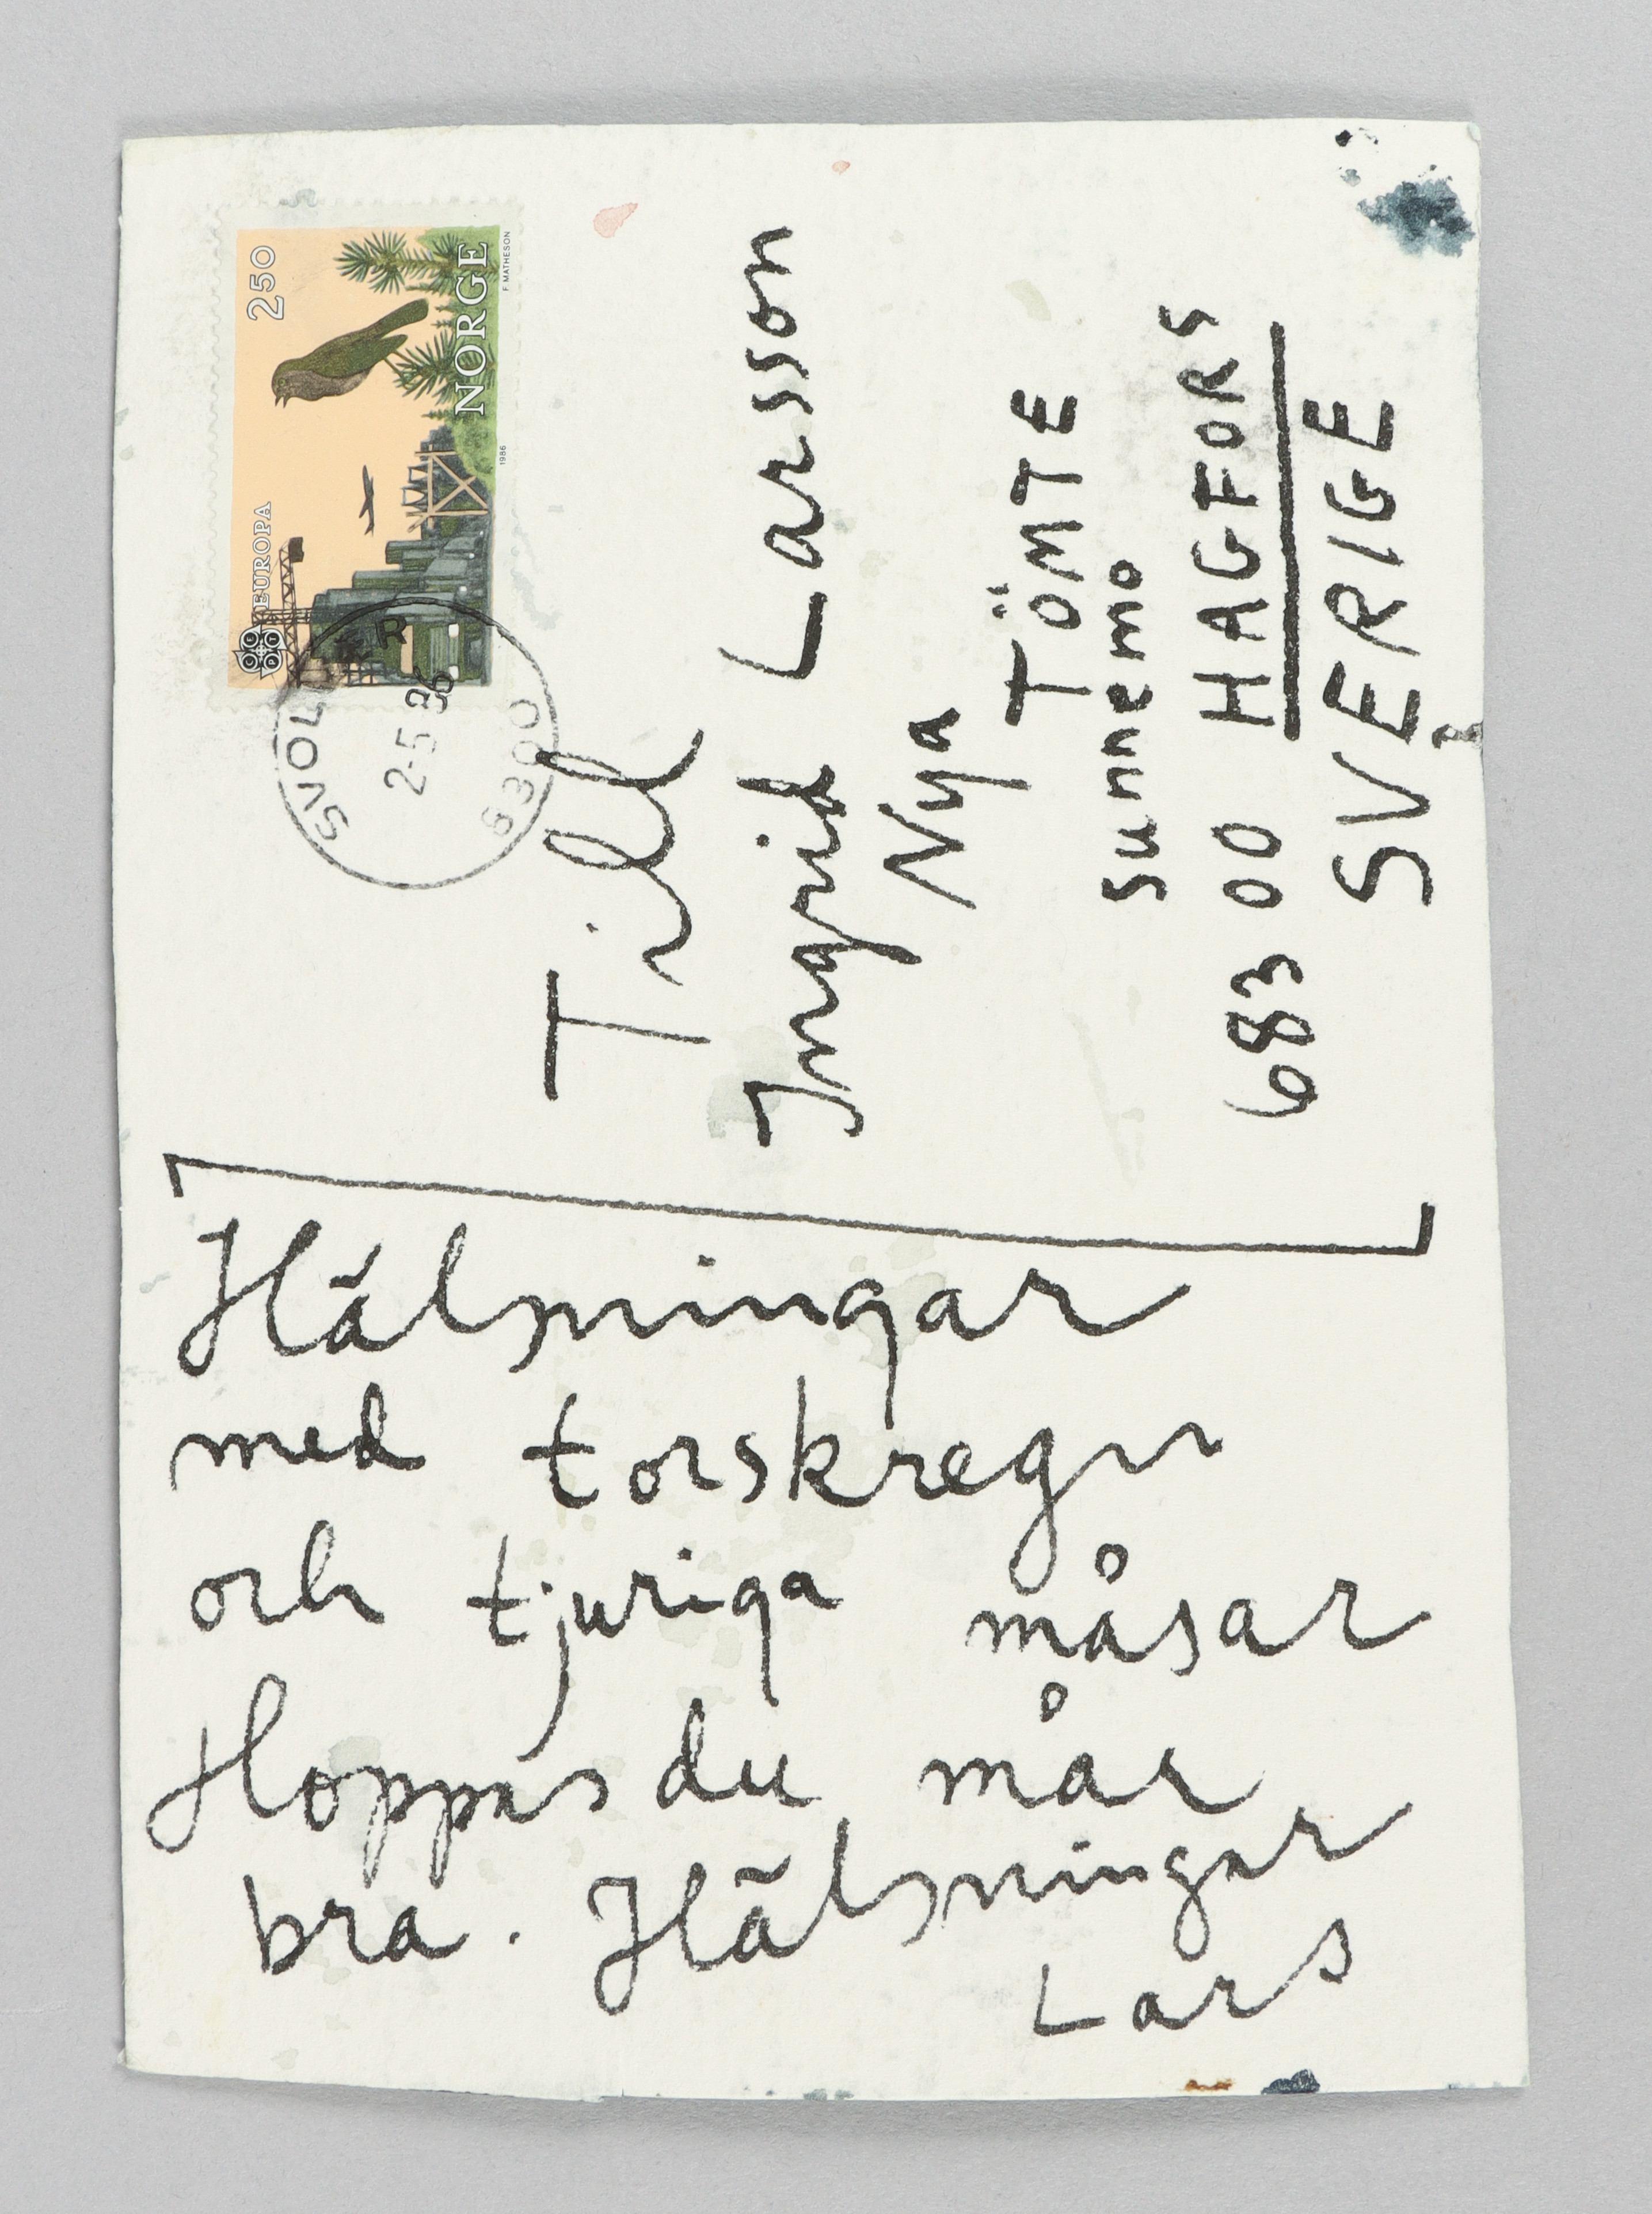 2 50
NORGE
F. MATHESON
1986
EUROPA
2-5 86
8300
Till
Ingrid Larsson
Nya
TÖMTE
Sunnemo
683 00 HAGFORS
SVERIGE
Hälsningar
med torskregn
och tjuriga måsar
Hoppas du mår
bra. Hälsningar
Lars